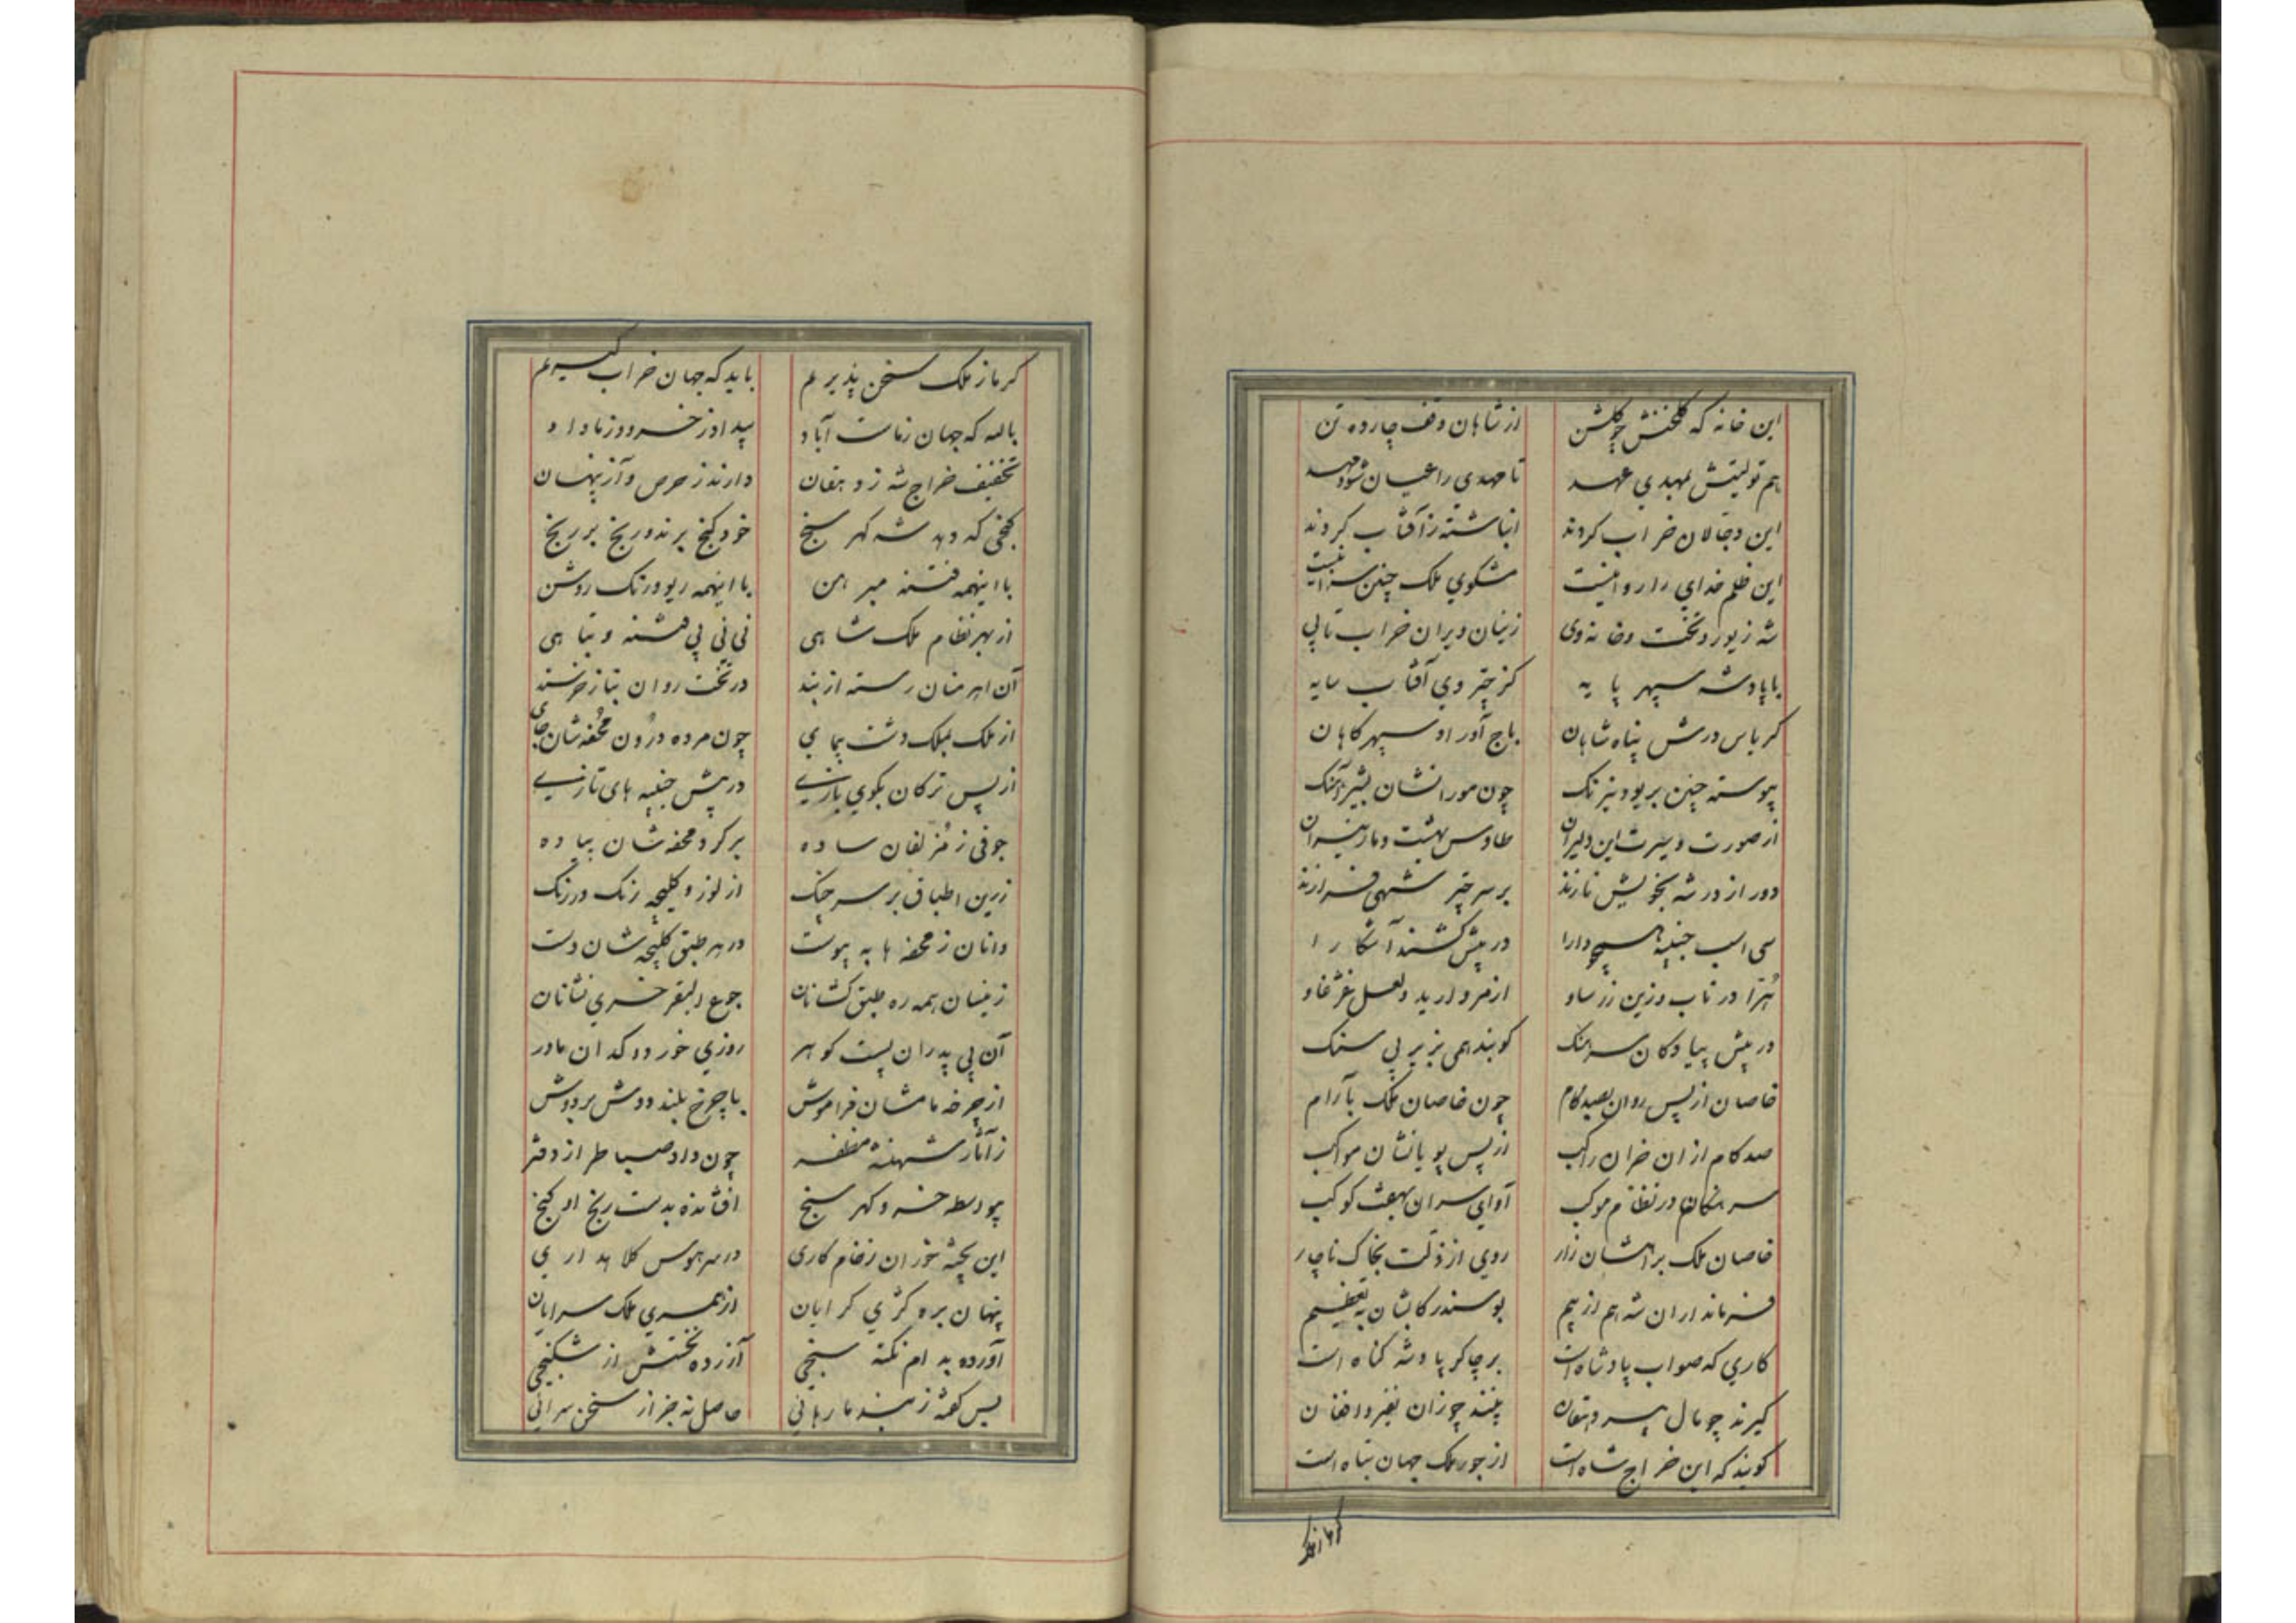 این خانه که گلخنش چو گلشن از شاهان وقف چارده تن
هم تولیتش بمهدی عهد تا مهدی را عیان شود مهد
این دجالان خراب کردند انباشته ز آفتاب کردند
این ظلم خدای را روا نیست مشکوی ملک چنین سزا نیست
شه زیور و تخت و خانه وی زینان ویران خراب تا پی
با پادشه سپهر پایه کز چتر وی آفتاب سایه
کرباس درش پناه شاهان باج آور او سپهر کاهان
پیوسته چنین بریو و نیرنک چون مورانشان بشیر آهنک
از صورت و سیرت این دلیران طاوس بهشت و مار نیران
دور از در شه بخویش نازند بر سر چتر شهی فرازند
سی اسب جنیبه همچو دارا در پیش کشند آشکارا
هرا در ناب و زین زر ساو از مروارید و لعل غژغاو
در پیش پیادکان سرهنک کوبند همی بزیر پی سنک
خاصان از پس روان بصد کام چون خاصان ملک بآرام
صد کام از ان خران راکب از پس پویانشان مواکب
سرهنکان در نظام موکب آوای سران بهفت کوکب
خاصان ملک براهشان زار روی از ذلت بخاک ناچار
فرمانداران شه هم از بیم بوسند رکابشان به تعظیم
کاری که صواب پادشاه است بر چاکر پادشه کناه است
کیرند چو مال پیر دهقان بینند چو زان نفیر و افغان
کویند که این خراج شاه است از جور ملک جهان تباه است
کر ما ز ملک سخن پذیریم باید که جهان خراب کیریم
بالله که جهان زماست آباد بیداد ز خسرو و ز ما داد
تخفیف خراج شه ز دهقان دارند ز حرص و آز پنهان
کنجی که دهد شه کهر سنج خود کنج برند و رنج بر رنج
با اینهمه فتنه مبرهن با اینهمه ریو و رنک روشن
از بهر نظام ملک شاهی نی نی پی فتنه و تباهی
آن اهرمنان رسته از بند در تخت روان بناز خرسند
از ملک بملک دشت پیمای چون مرده درون محفه شان جای
از پس ترکان بکوی بازی در پیش جنیبه های تازی
جوقی ز مزلفان ساده بر کرد محفه شان پیاده
زرین اطباق بر سر چنک از لوز و کلیچه رنک در رنک
و انان ز محفه ها به پیوست در هر طبق کلیچه شان دست
زینسان همه ره طبق کشانان جوع البقر خری نشانان
آن بی پدران پست کوهر روزی خور دوکدان مادر
از چرخه مامشان فراموش با چرخ بلند دوش بر دوش
ز آثار شهنشه مظفر چون داد صبا طراز دفتر
بیواسطه خسرو کهر سنج افشانده بدست رنج او کنج
این پخته خوران ز خام کاری در سر هوس کلاهداری
پنهان بره کژی کرایان از همسری ملک سرایان
آورده به ام نکته سنجی آزرده تنش از شکنجی
پس کفته ز بند ما رهائی حاصل نه جز از سخن سرائی